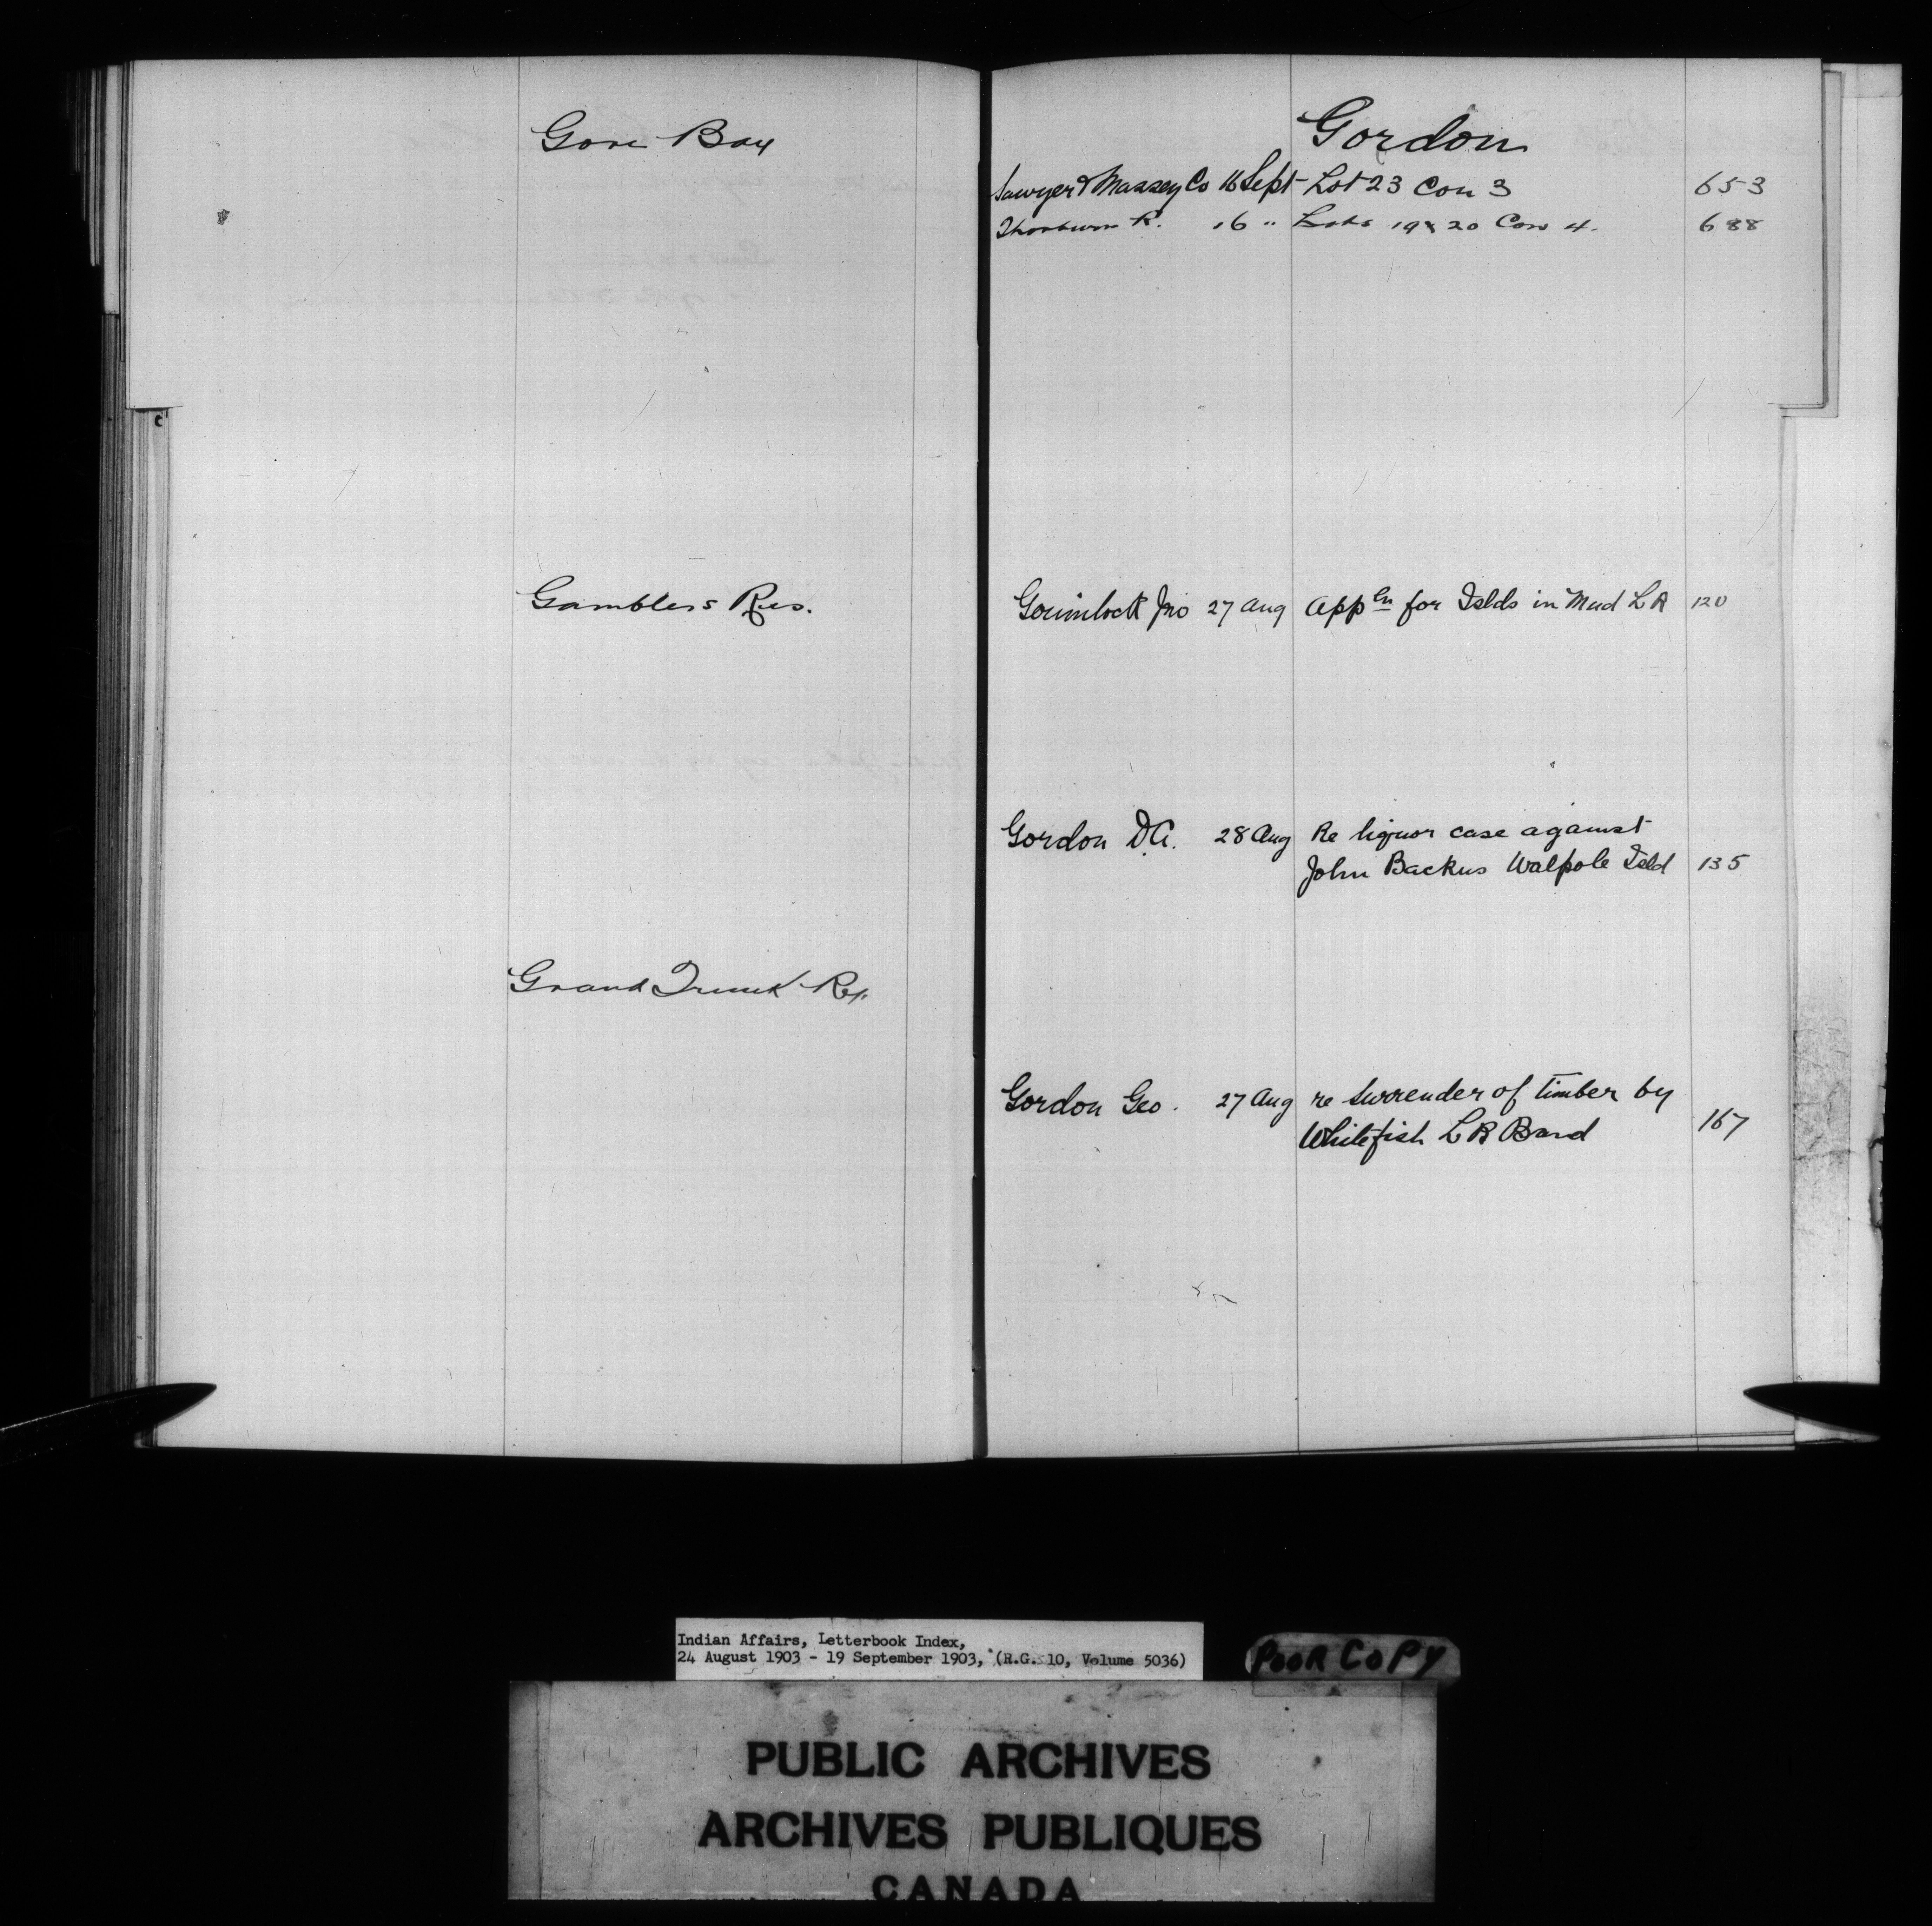 Gore Bay
Gamblers Res.
Grand Trunk Ry.
Gordon
Sawyer & Massey Co 16 Sept Lot 23 Con 3 653
Thorburn R. 16 " Lots 19 & 20 Con 4. 688
Gourinlock Jno 27 Aug Appln for Islds in Mud L R 120
Gordon D.A. 28 Aug Re liquor case against
John Backus Walpole Isld 135
Gordon Geo. 27 Aug re surrender of timber by
Whitefish L R Band 167
C
Indian Affairs, Letterbook Index,
24 August 1903 - 19 September 1903, (R.G. 10, Volume 5036)
POOR COPY
PUBLIC ARCHIVES
ARCHIVES PUBLIQUES
CANADA